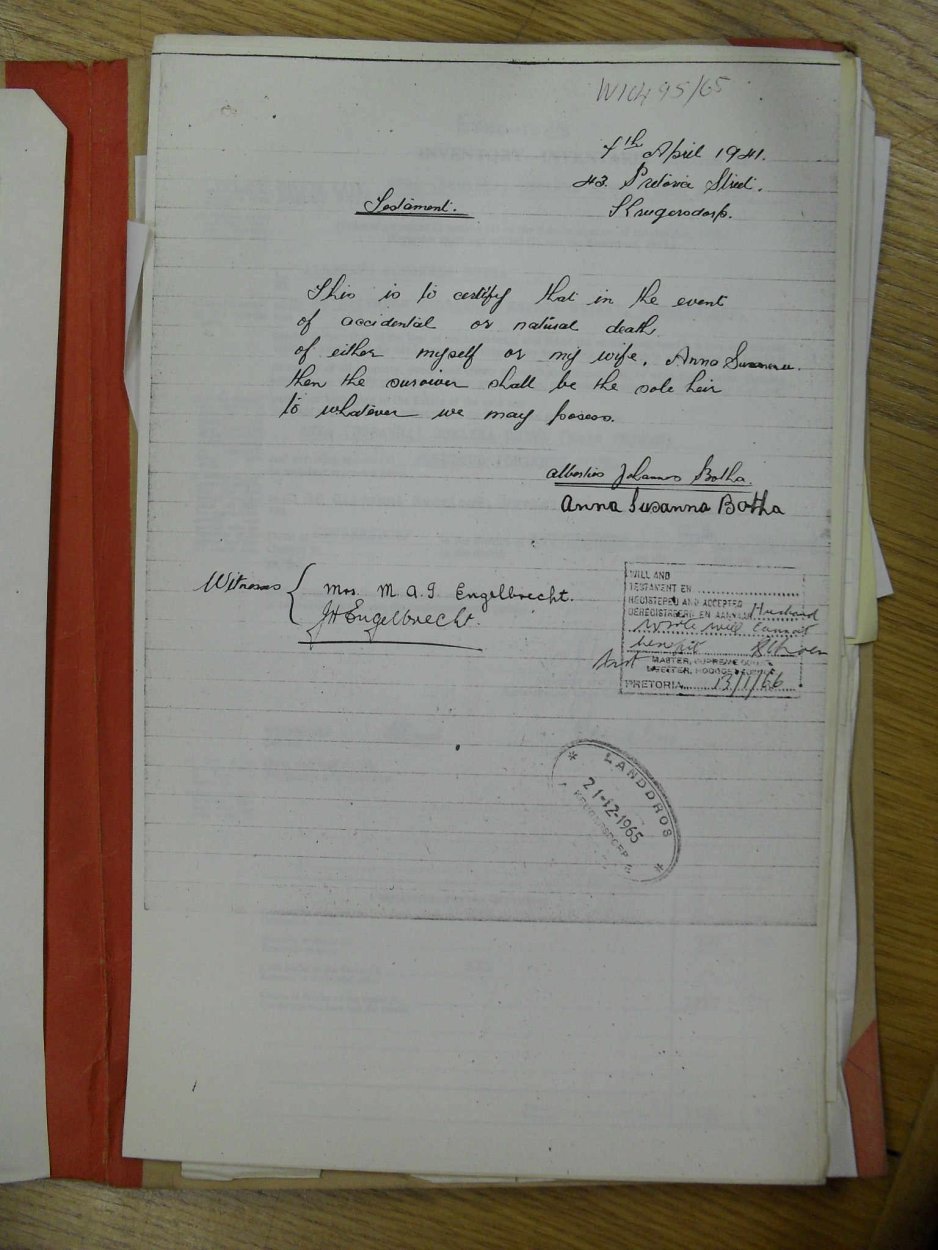 W1495/65
4th April 1941.
43. Pretoria Street.
Krugersdorp.
Testament.
This is to certify that in the event
of accidental or natural death
of either myself or my wife, Anna Susanna.
then the survivor shall be the sole heir
to whatever we may posess.
Albertus Johannes Botha.
Anna Susanna Botha
Witnesses
Mrs. M. A. J. Engelbrecht.
JH Engelbrecht.
WILL AND
TESTAMENT EN
REGISTERED AND ACCEPTED
GEREGISTREER EN AANVAAR Husband
wrote will cannot
benefit
MASTER, SUPREME COURT
MEESTER, HOOGGEREGSHOF
PRETORIA 13/1/66
* LANDDROS *
21-12-1965
KRUGERSDORP